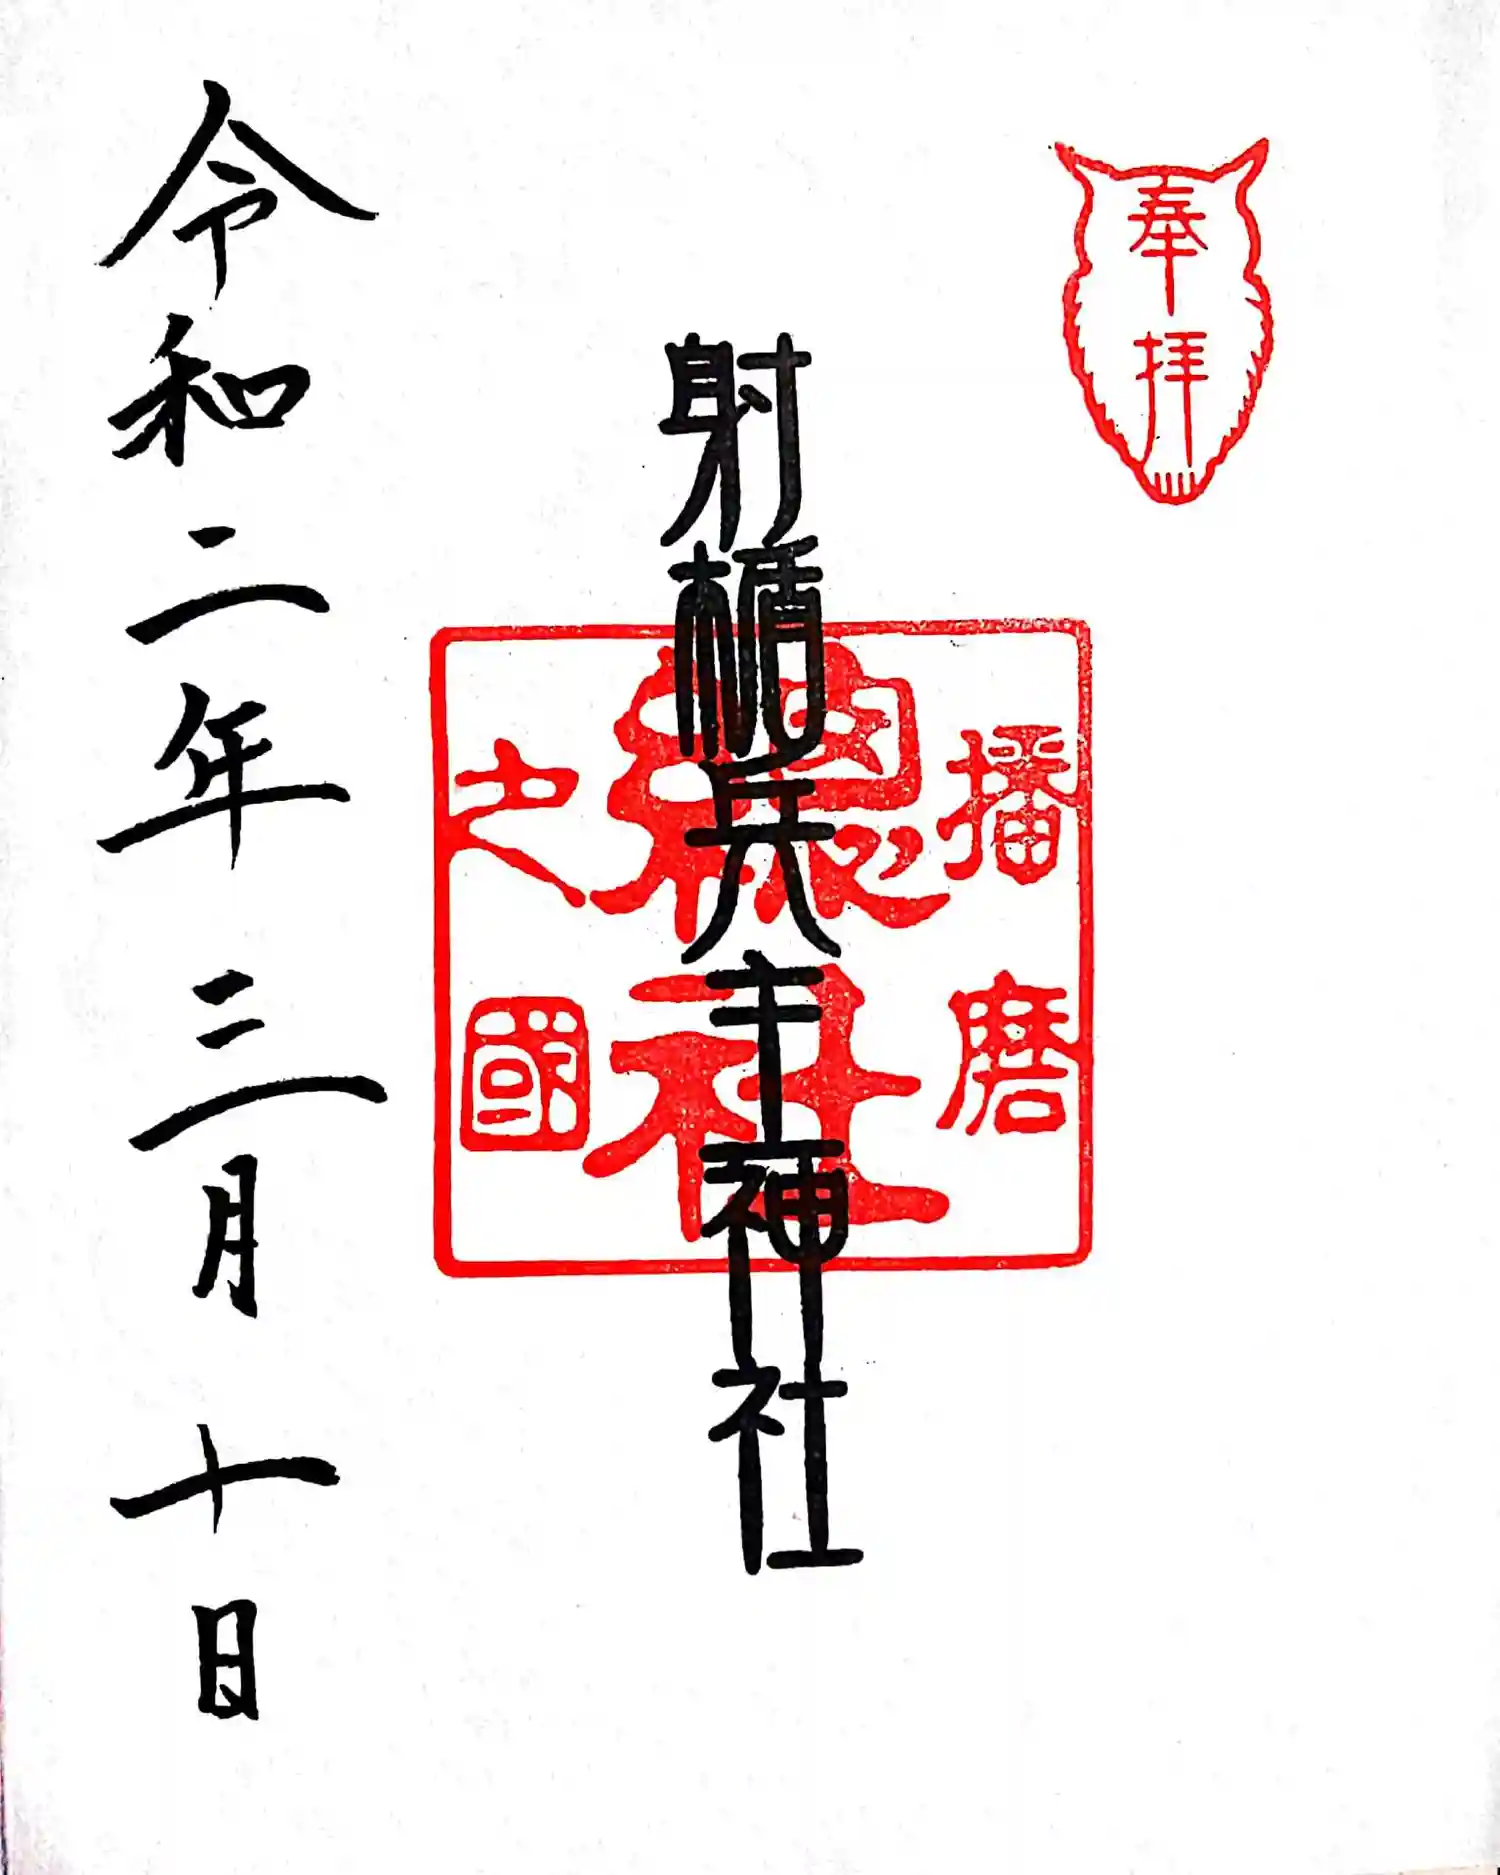 奉拝
射楯兵主神社
播磨
總社
之國
令和二年三月十日